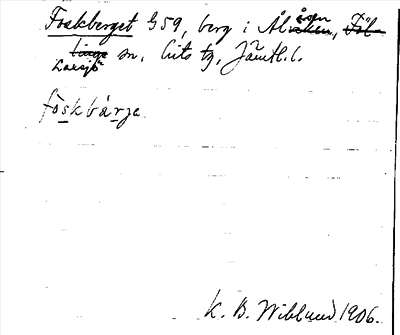 Foskberget G59, berg i Ålåsen,
Laxsjö sn, Lits tg, Jämtl. l.
foskbárja
K. B. Wiklund 1906.